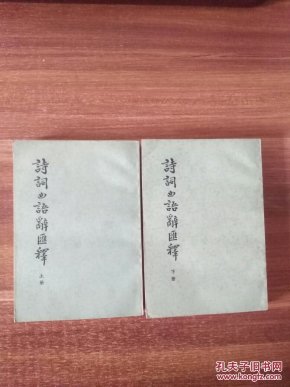 詩詞曲語辭匯釋
上册
詩詞曲語辭匯釋
下册
孔夫子旧书网